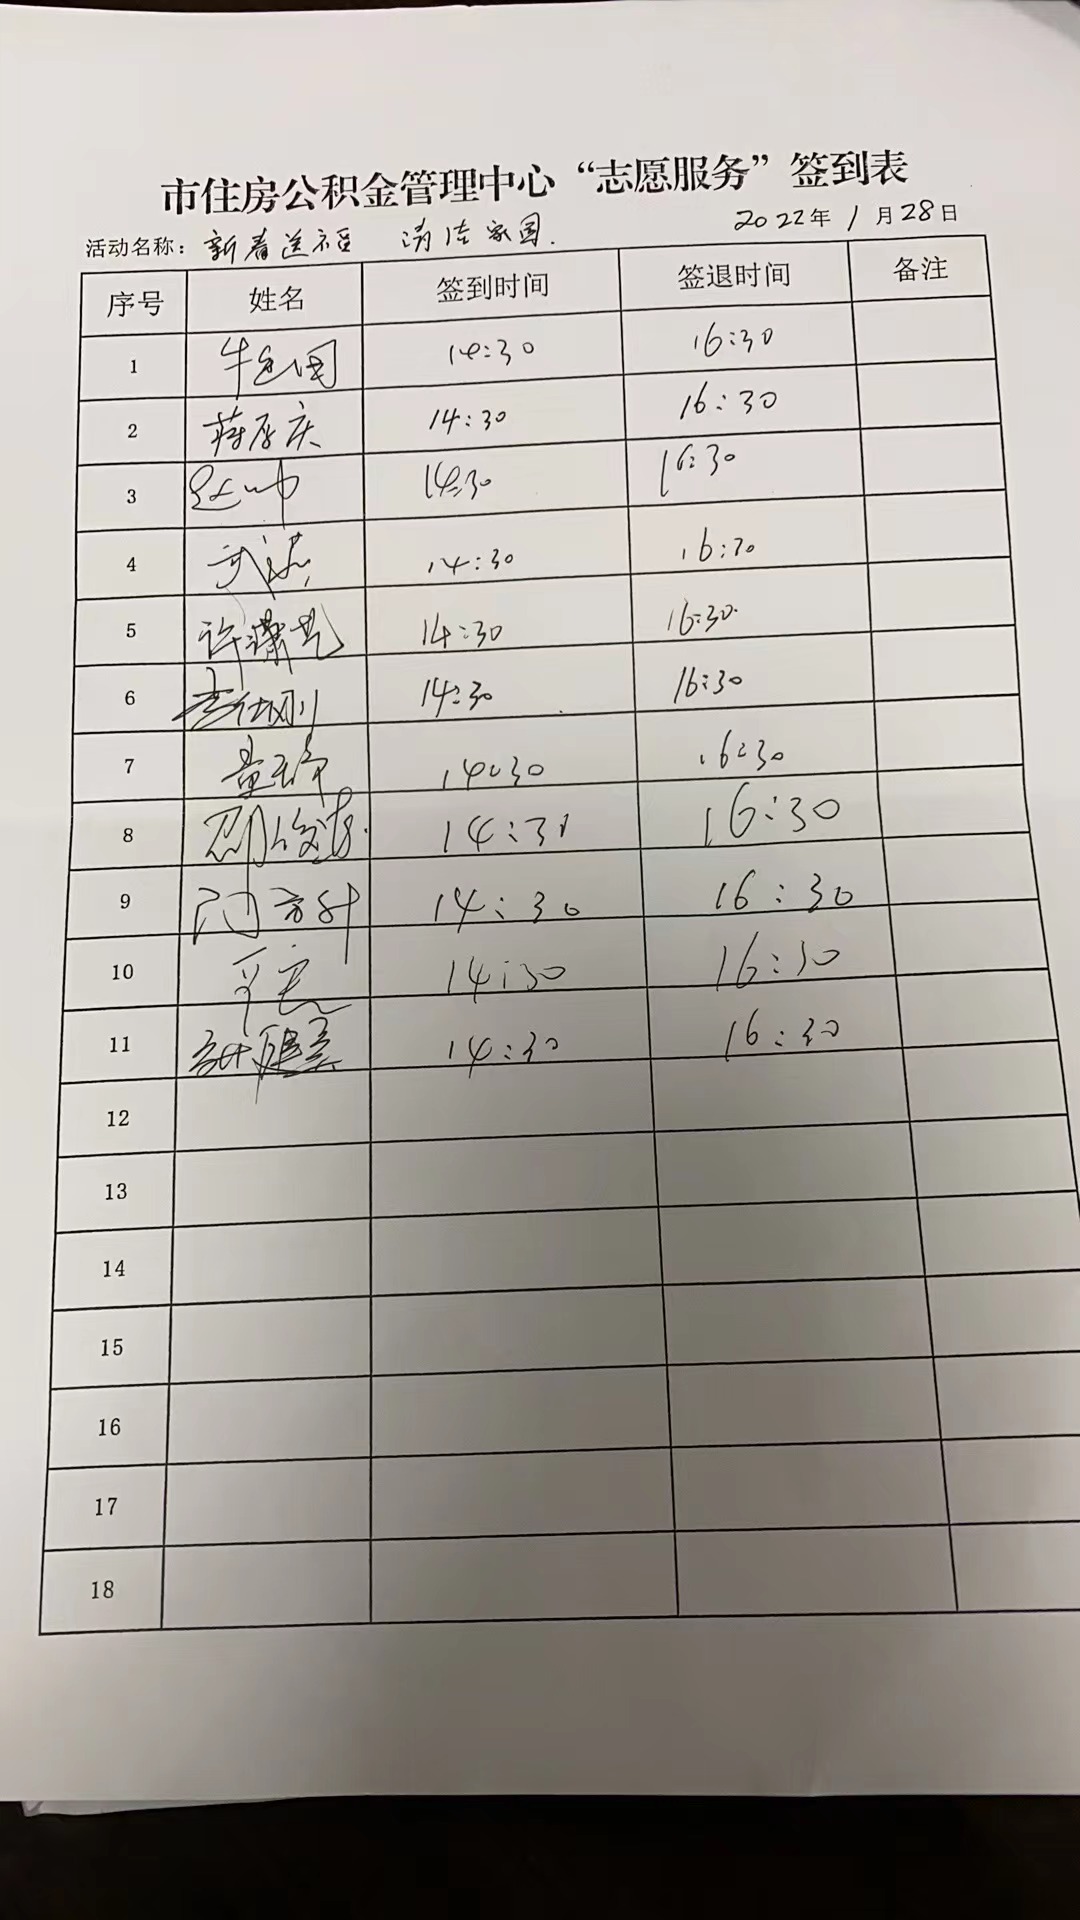 市住房公积金管理中心“志愿服务”签到表
活动名称：新春送福 清洁家园. 2022年1月28日
序号 姓名 签到时间 签退时间 备注
1 14:30 16:30
2 蒋厚庆 14:30 16:30
3 14:30 16:30
4 14:30 16:30
5 14:30 16:30
6 14:30 16:30
7 14:30 16:30
8 14:30 16:30
9 14:30 16:30
10 14:30 16:30
11 14:30 16:30
12
13
14
15
16
17
18